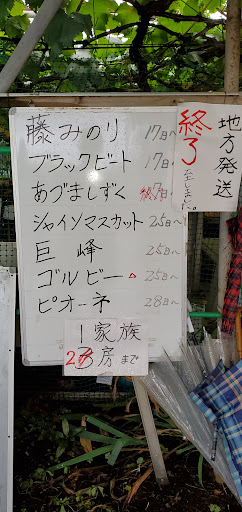 藤みのり 17日〜
ブラックビート 17日〜
あづましずく 終了
シャインマスカット 25日〜
巨峰 25日〜
ゴルビー 25日〜
ピオーネ 28日〜
1家族
2房まで
地方発送
終了致しました。